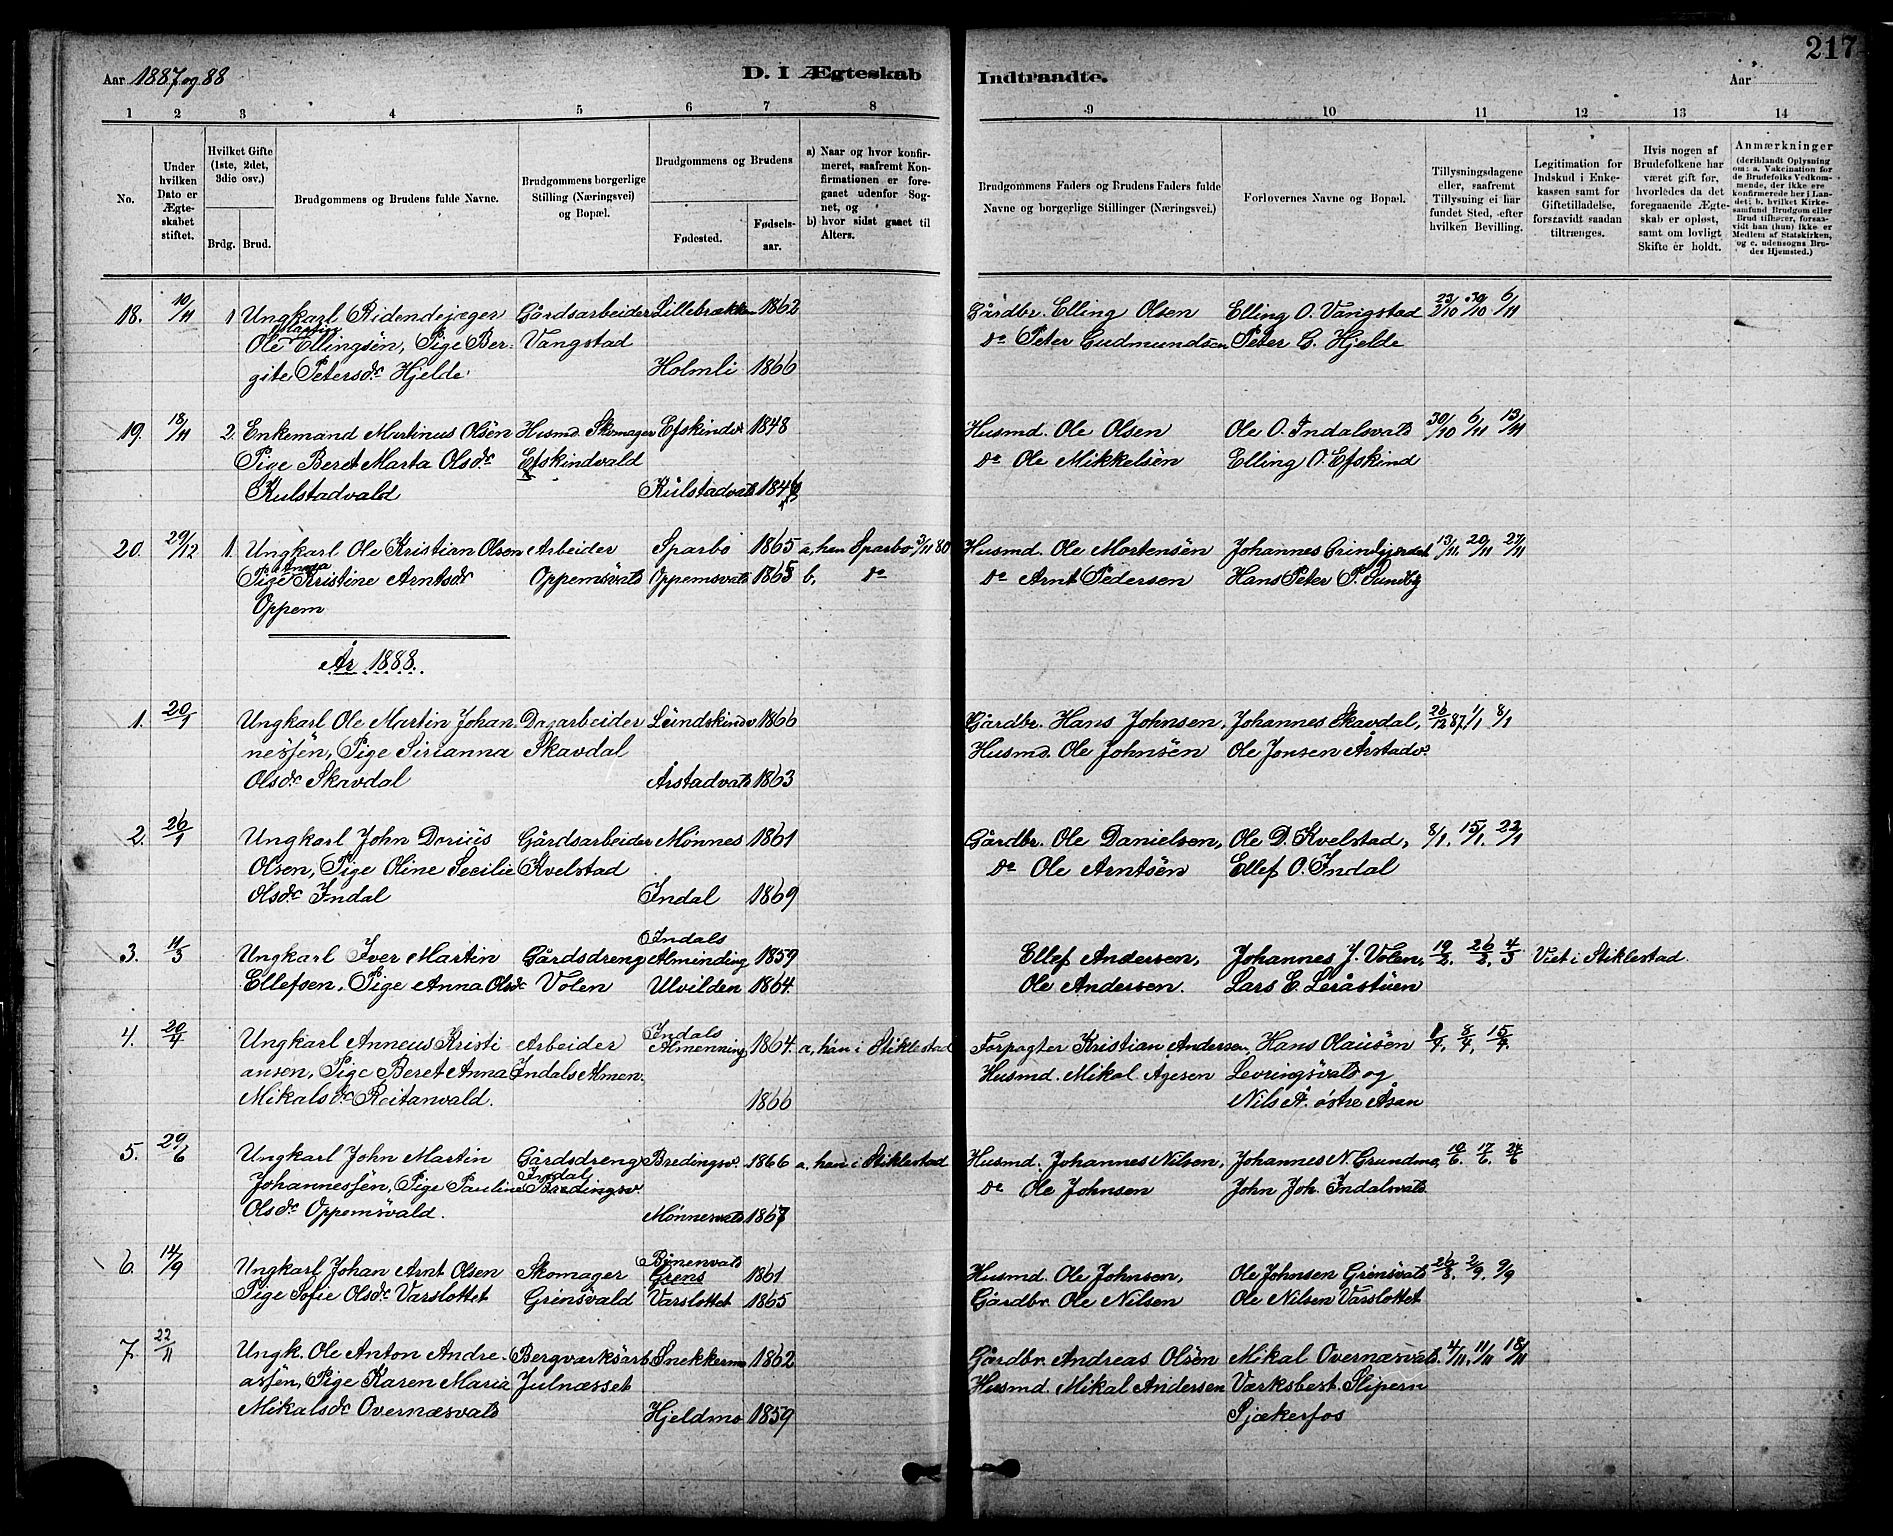 217
Aar 1887 og 88 D. I Ægteskab Indtraadte. Aar
1 2 3 4 5 6 7 8 9 10 11 12 13 14
No.
Under hvilken Dato er Ægteskabet stiftet.
Hvilket Gifte (1ste, 2det, 3die osv.)
Brdg. Brud.
Brudgommens og Brudens fulde Navne.
Brudgommens borgerlige Stilling (Næringsvei) og Bopæl.
Brudgommens og Brudens
Fødested. Fødselsaar.
a) Naar og hvor konfirmeret, saafremt Konfirmationen er foregaaet udenfor Sognet, og
b) hvor sidst gaaet til Alters.
Brudgommens Faders og Brudens Faders fulde Navne og borgerlige Stillinger (Næringsvei.)
Forlovernes Navne og Bopæl.
Tillysningsdagene eller, saafremt Tillysning ei har fundet Sted, efter hvilken Bevilling.
Legitimation for Indskud i Enkekassen samt for Giftetilladelse, forsaavidt saadan tiltrænges.
Hvis nogen af Brudefolkene har været gift før, hvorledes da det foregaaende Ægteskab er opløst, samt om lovligt Skifte er holdt.
Anmærkninger (deriblandt Oplysning om: a. Vakcination for de Brudefolks Vedkommende, der ikke ere konfirmerede her i Landet; b. hvilket Kirkesamfund Brudgom eller Brud tilhører, forsaavidt han (hun) ikke er Medlem af Statskirken, og c. udensogns Brudes Hjemsted.)
18. 10/11 1 Ungkarl Ridendejæger Gårdsarbeider Lillebrækken 1862 Gårdbr. Elling Olsen Elling O. Vangstad 23/10 30/10 6/11
Ole Ellingsen, Pige Ber- Vangstad do Peter Gudmundsen Peter G. Hjelde
gite Petersdr Hjelde Holmli 1866
19. 18/11 2. Enkemand Martinus Olsen Husmd. Skomager Efskindv. 1848 Husmd. Ole Olsen Ole O. Indalsvald 30/10 6/11 13/11
Pige Beret Marta Olsdr Efskindvald do Ole Mikkelsen Elling O. Efskind
Kulstadvald Kulstadvald
20. 29/12 1. Ungkarl Ole Kristian Olsen Arbeider Sparbo 1865 a, han Sparbo 3/11 80 Husmd. Ole Mortensen Johannes Grindgjerdet 13/11, 20/11 27/11
Anna
Pige Kristine Arntsdr Oppemsvald Oppemsvald 1865 b, do do Arnt Pedersen Hans Peter P. Sundby
Oppem
År 1888.
1. 20/1 Ungkarl Ole Martin Johan Dagarbeider Leindskindv 1866 Gårdbr. Hans Johnsen, Johannes Skavdal, 26/12 87, 1/1 8/1
nessen, Pige Sirianna Skavdal Husmd. Ole Johnsen Ole Jonsen Årstadv.
Olsdr Skavdal Årstadvald 1863
2. 26/1 Ungkarl John Dorius Gårdsarbeider Mønnes 1861 Gårdbr. Ole Danielsen, Ole D. Kvelstad, 8/1, 15/1, 22/1
Olsen, Pige Oline Secilie Kvelstad do Ole Arntsen Ellef O. Indal
Olsdr Indal Indal 1869
3. 11/3 Ungkarl Iver Martin Gårdsdreng Indals Alminding 1859 Ellef Andersen, Johannes J. Volen, 19/2, 26/2, 4/3 Viet i Stiklestad.
Ellefsen, Pige Anna Olsdr Volen Ulvilden 1864. Ole Andersen. Lars E. Leråstuen
4. 20/4 Ungkarl Anneus Kristi Arbeider Indals Almenning 1864. a, han i Stiklestad Forpagter Kristian Andersen Hans Olausen 1/4, 8/4, 15/4.
ansen, Pige Beret Anna Indals Almen. Husmd. Mikal Agesen Levringsvald og
Mikalsdr Reitanvald. 1866 Nils A. østre Åsan
5. 29/6 Ungkarl John Martin Gårdsdreng Bredingsv. 1866 a, han i Stiklestad Husmd. Johannes Nilsen, Johannes N. Grundmo, 10/6, 17/6, 24/6
Johannessen, Pige Pauline Indal Bredingsv. do Ole Johnsen John Joh. Indalsvald
Olsdr Oppemsvald. Mønnesvald 1867
6. 14/9 Ungkarl Johan Arnt Olsen Skomager Bynenvald Grens 1861 Husmd. Ole Johnsen, Ole Johnsen Grensvald 26/8, 2/9, 9/9
Pige Sofie Olsdr Varslottet Grensvald Varslottet 1865 Gårdbr. Ole Nilsen Ole Nilsen Varslottet
7. 22/11 Ungk. Ole Anton Andre- Bergværksarb Snekkermo 1862 Gårdbr. Andreas Olsen Mikal Overnæsvald. 4/11, 11/11 18/11
assen, Pige Karen Maria Julnæsset Husmd. Mikal Andersen Værksbest. Slipern
Mikalsdr Overnæsvald Hjeldmo 1859 Sjækerfos